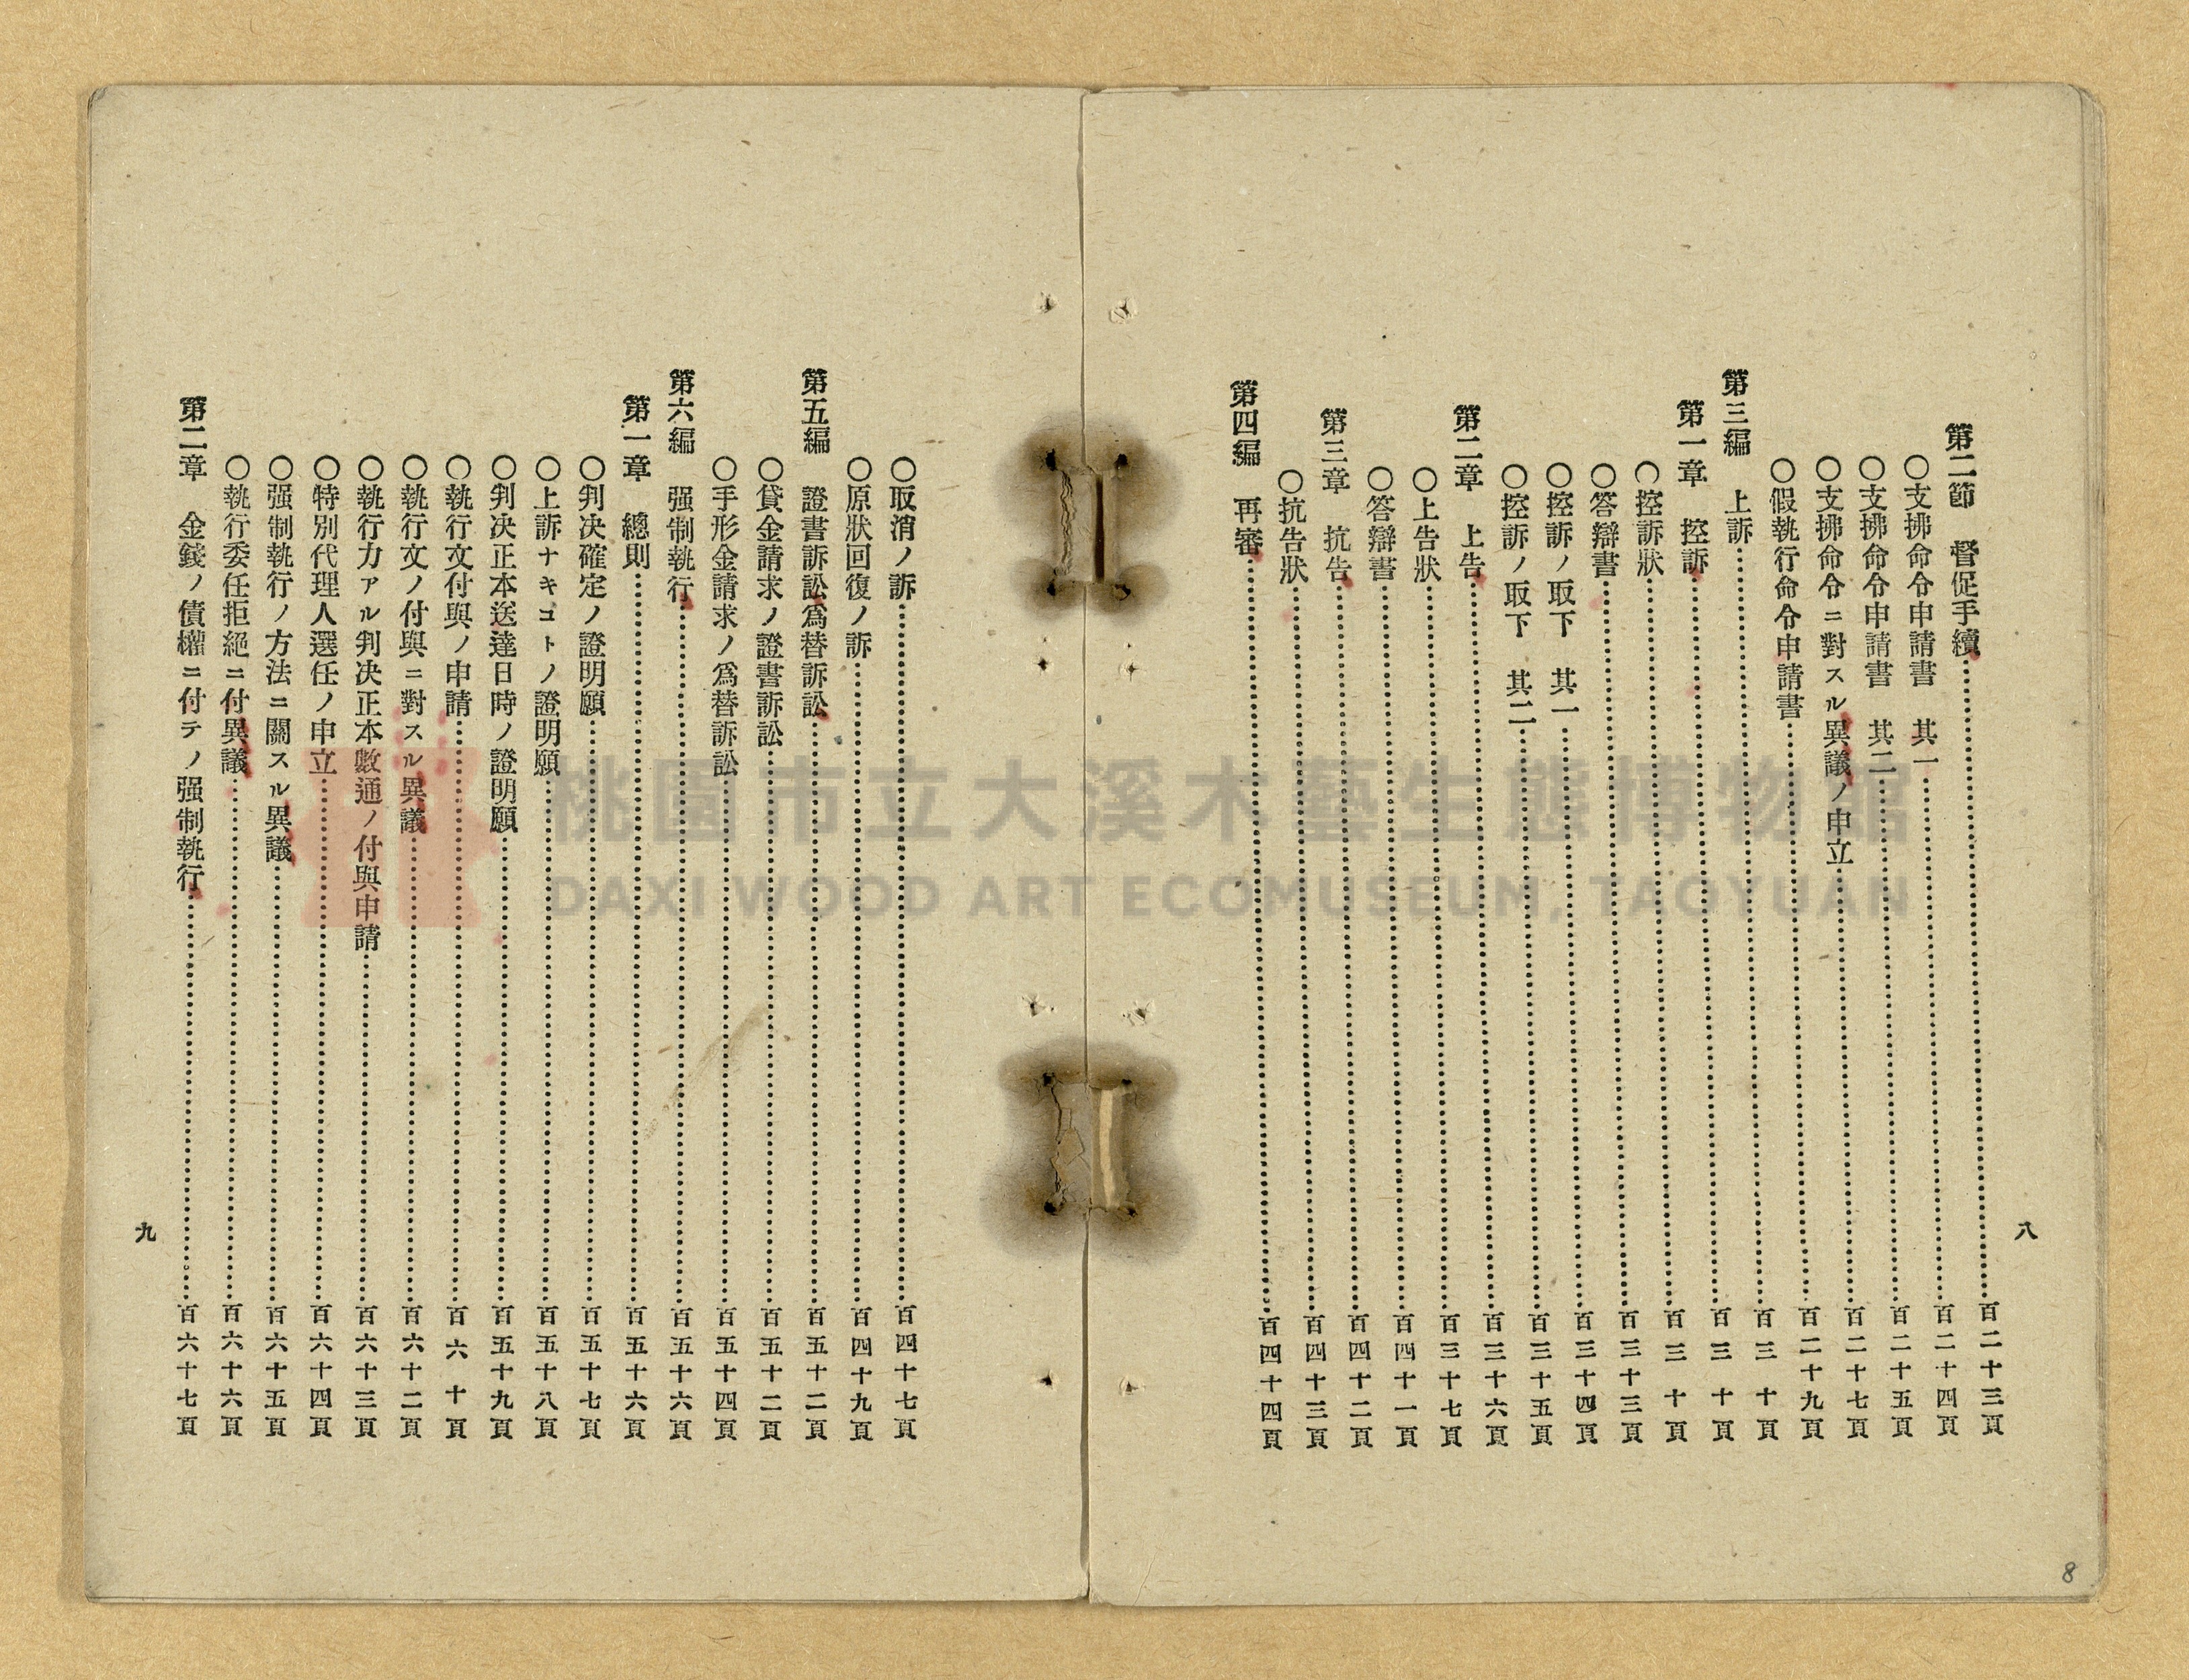 八
第二節　督促手續……百二十三頁
〇支拂命令申請書　其一……百二十四頁
〇支拂命令申請書　其二……百二十五頁
〇支拂命令ニ對スル異議ノ申立……百二十七頁
〇假執行命令申請書……百二十九頁
第三編　上訴……百三十頁
第一章　控訴……百三十頁
〇控訴狀……百三十頁
〇答辯書……百三十三頁
〇控訴ノ取下　其一……百三十四頁
〇控訴ノ取下　其二……百三十五頁
第二章　上告……百三十六頁
〇上告狀……百三十七頁
〇答辯書……百四十一頁
第三章　抗告……百四十二頁
〇抗告狀……百四十三頁
第四編　再審……百四十四頁
〇取消ノ訴……百四十七頁
〇原狀回復ノ訴……百四十九頁
第五編　證書訴訟爲替訴訟……百五十二頁
〇貸金請求ノ證書訴訟……百五十二頁
〇手形金請求ノ爲替訴訟……百五十四頁
第六編　强制執行……百五十六頁
第一章　總則……百五十六頁
〇判决確定ノ證明願……百五十七頁
〇上訴ナキコトノ證明願……百五十八頁
〇判决正本送達日時ノ證明願……百五十九頁
〇執行文付與ノ申請……百六十頁
〇執行文ノ付與ニ對スル異議……百六十二頁
〇執行力アル判决正本數通ノ付與申請……百六十三頁
〇特別代理人選任ノ申立……百六十四頁
〇强制執行ノ方法ニ關スル異議……百六十五頁
〇執行委任拒絕ニ付異議……百六十六頁
第二章　金錢ノ債權ニ付テノ强制執行……百六十七頁
九
8
桃園市立大溪木藝生態博物館
DAXI WOOD ART ECOMUSEUM, TAOYUAN